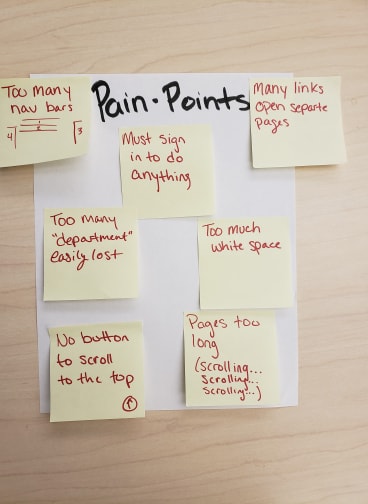 Pain • Points
Too Many
nav bars
1
2
4
3
Many links
open separte
pages
Must sign
in to do
anything
Too many
"department"
easily lost
Too much
white space
No button
to scroll
to the top
Pages too
long
(scrolling...
scrolling...
scrolling...)